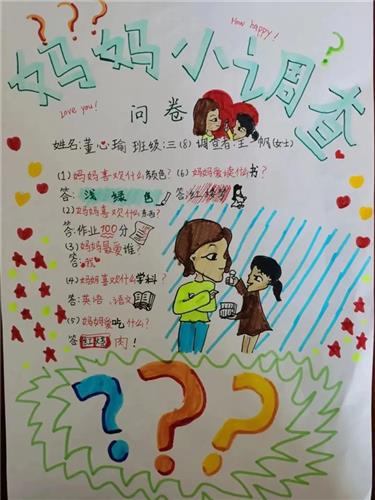 How happy!
妈妈小调查
Love you!
问卷
姓名:董心瑜 班级:三(8) 调查者:王帆(女士)
(1)妈妈喜欢什么颜色?
答:浅绿色
(2)妈妈喜欢什么东西?
答:作业100分
(3)妈妈最爱谁?
答:我
(4)妈妈喜欢什么学科?
答:英语、语文
(5)妈妈爱吃什么?
答:红烧肉!
(6)妈妈爱读什么书?
答:红楼梦
???